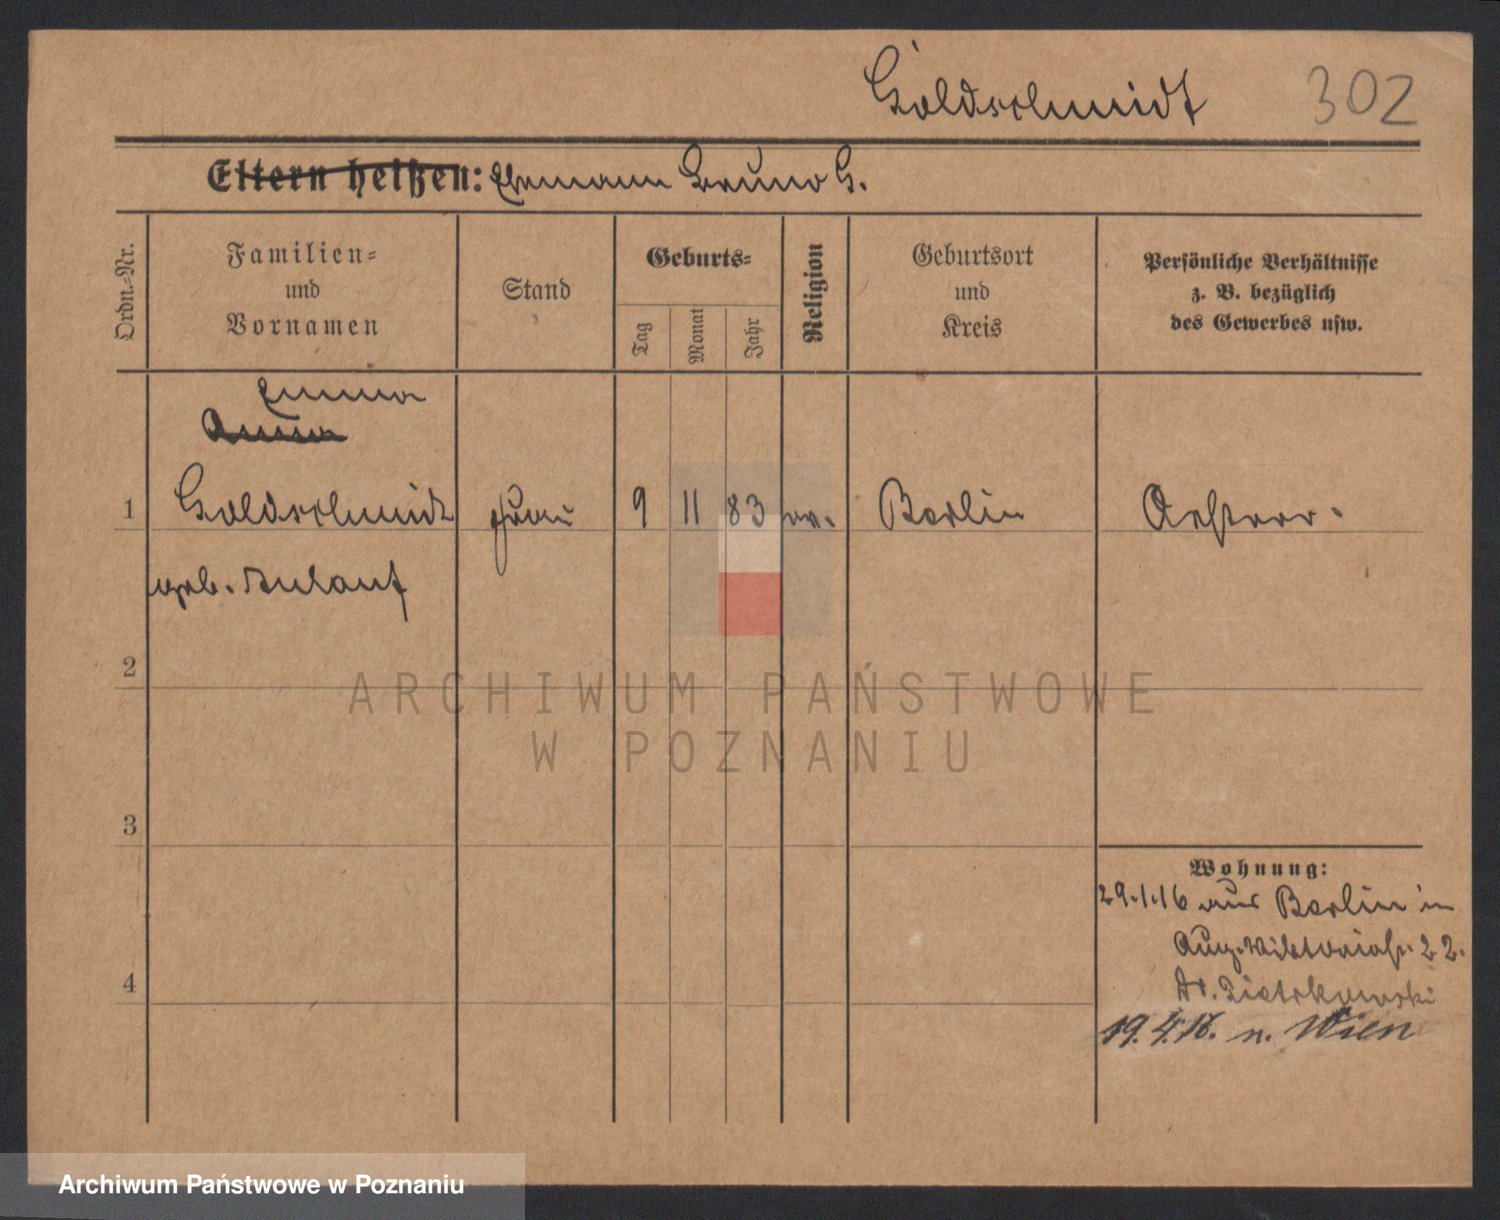 Goldschmidt 302
Eltern heißen: Ehemann Bruno G.
Ordn.-Nr.
Familien-
und
Vornamen
Stand
Geburts-
Tag
Monat
Jahr
Religion
Geburtsort
und
Kreis
Persönliche Verhältnisse
z. B. bezüglich
des Gewerbes usw.
Emma
Anna
1 Goldschmidt Frau 9 11 83 ev. Berlin Oesterr.
geb.
2
3
4
Wohnung:
29.1.16 aus Berlin in
Aug. Viktoriastr. 22.
Dr. Pietrkowski
19.4.16. n. Wien
ARCHIWUM PAŃSTWOWE
W POZNANIU
Archiwum Państwowe w Poznaniu